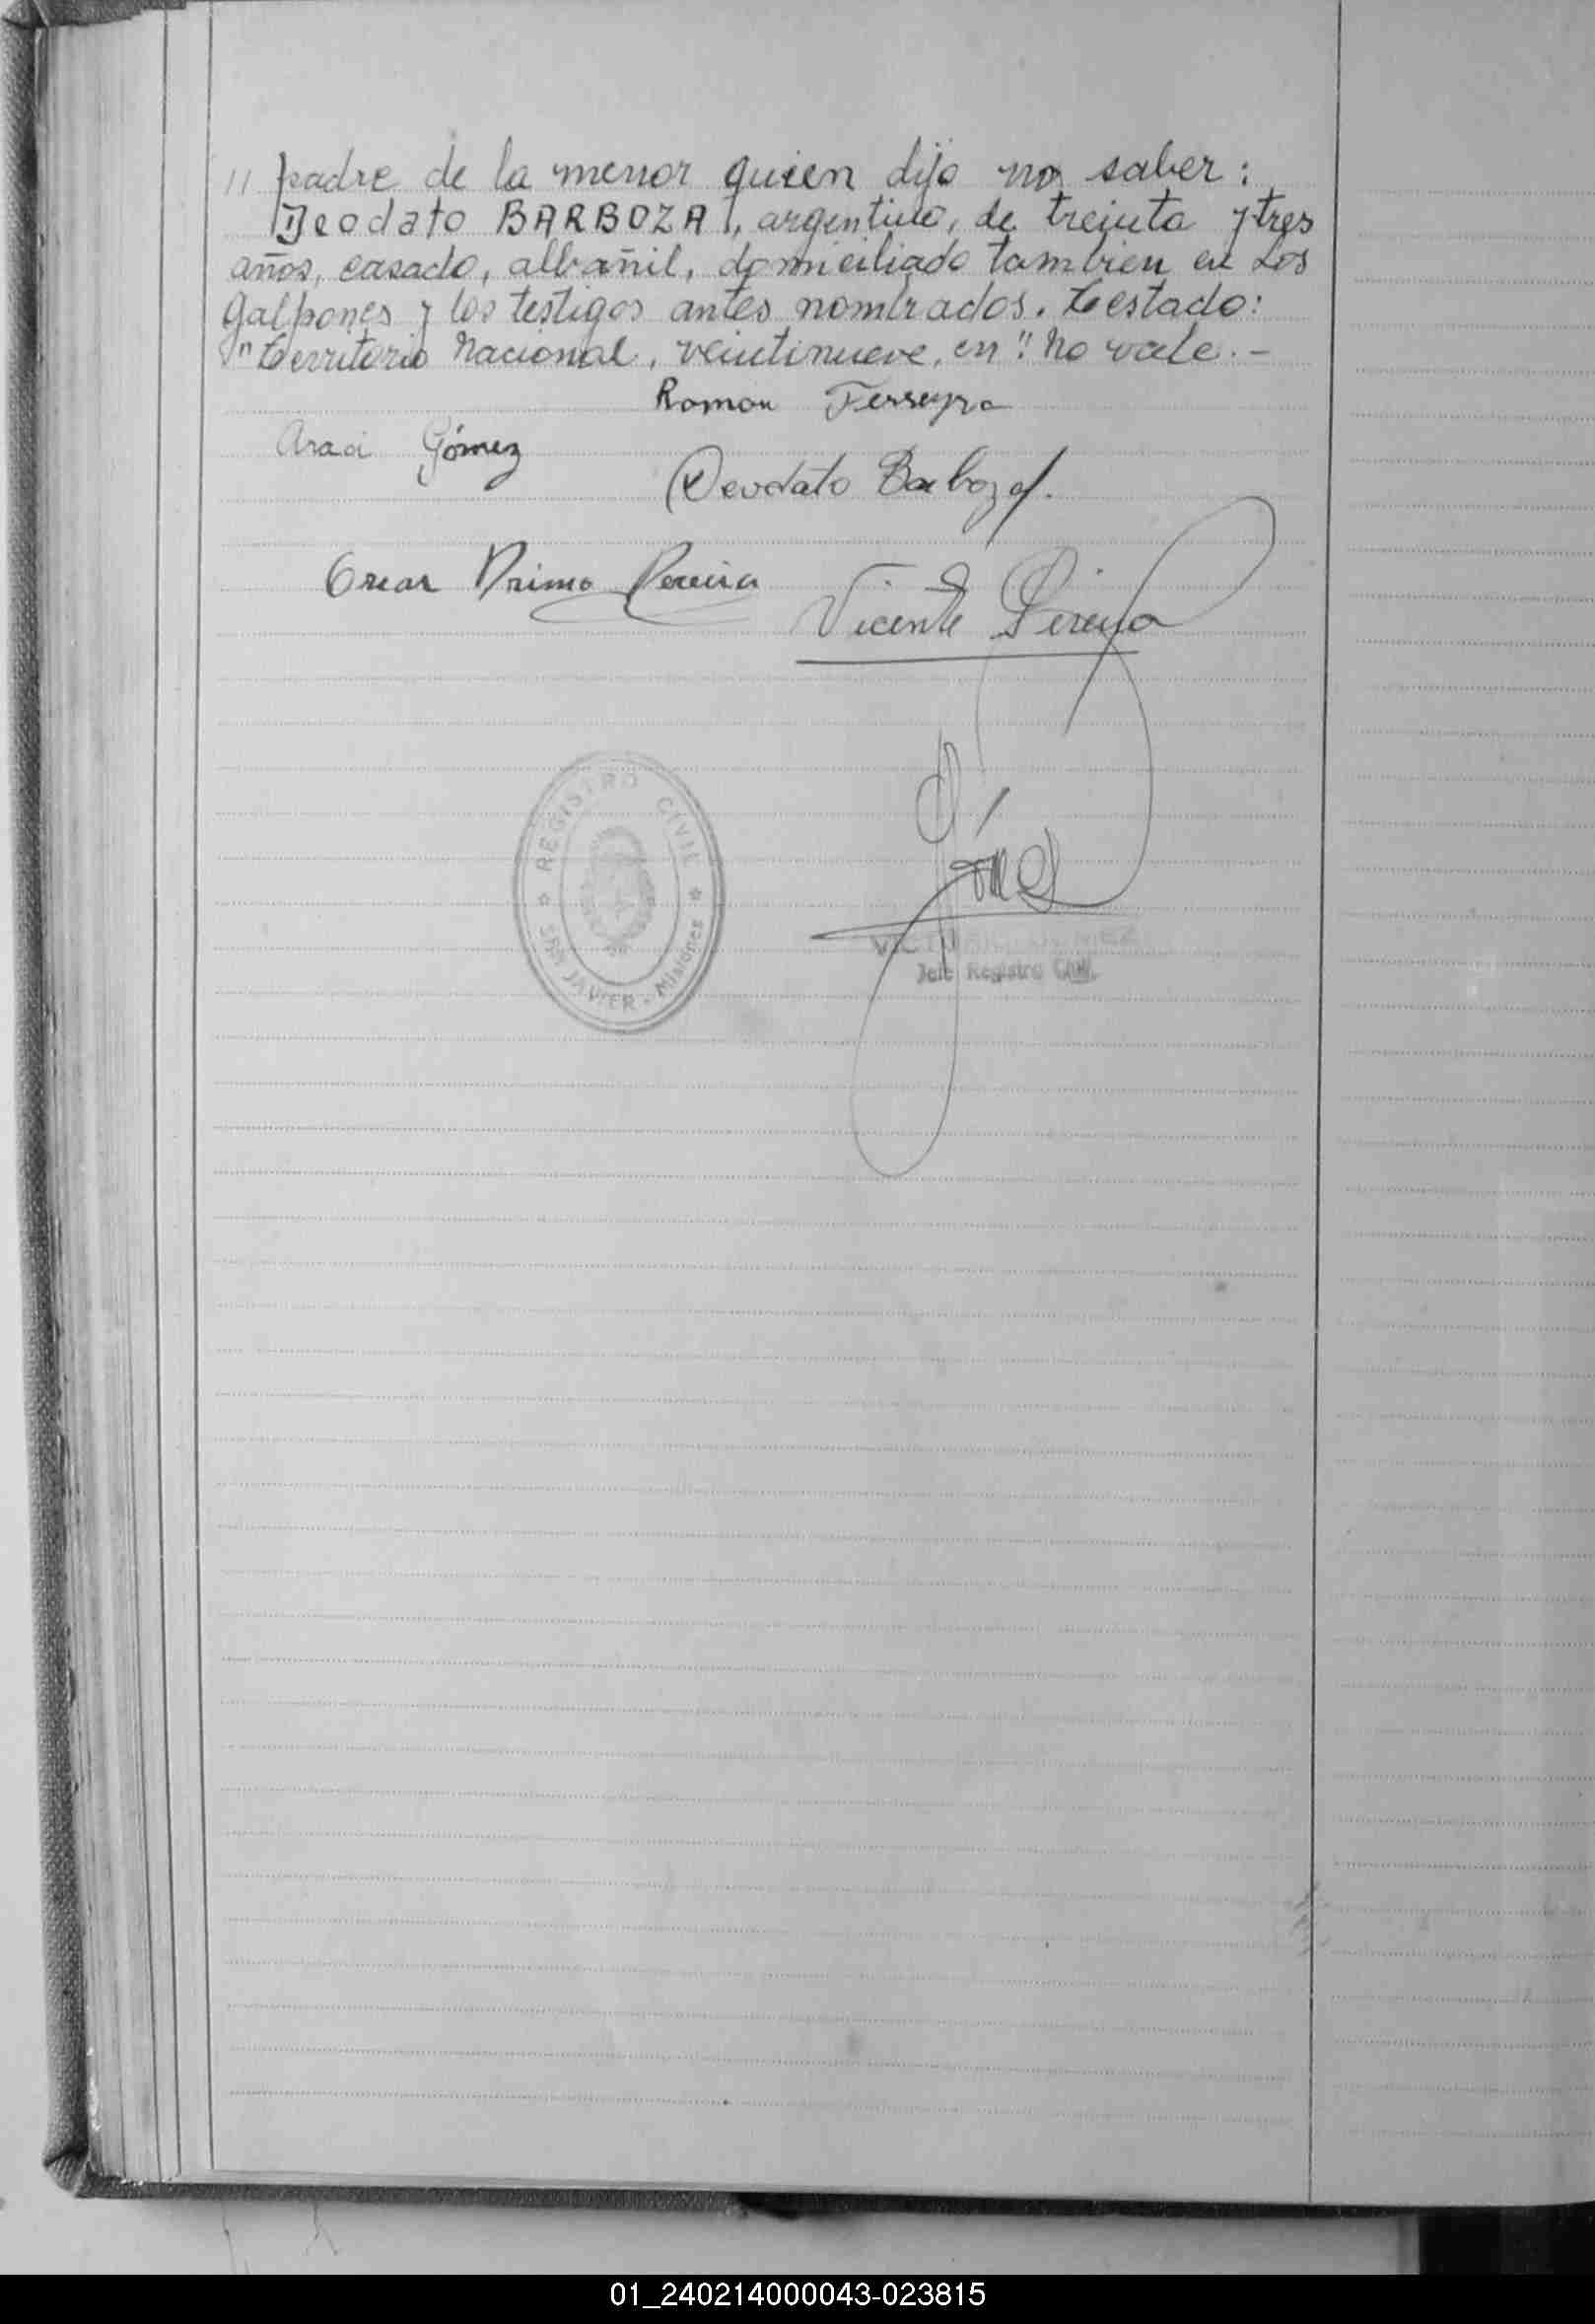 11 padre de la menor quien dijo no saber:
Deodato BARBOZA, argentino, de treinta y tres
años, casado, albañil, domiciliado tambien en Los
Galpones y los testigos antes nombrados. Testado:
"Territorio Nacional, veintinueve, en": No vale.-
Ramon Ferreyra
Araci Gómez
Deodato Barboza
Primo Pereira
Vicente Pereyra
REGISTRO CIVIL
SAN JAVIER - Misiones
GOMEZ
Jefe Registro Civil
01_240214000043-023815